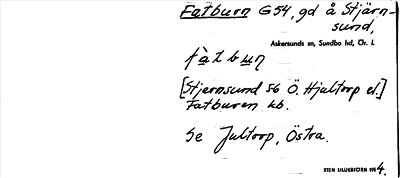 Fatburn G54, gd å Stjärn-
sund,
Askersunds sn, Sundbo hd, Ör. l.
fàtbuṇ
[Stjernsund 56 Ö. Hjultorp el.]
Fatburen kb.
Se Jultorp, Östra.
STEN LILLIEBJÖRN 1954.